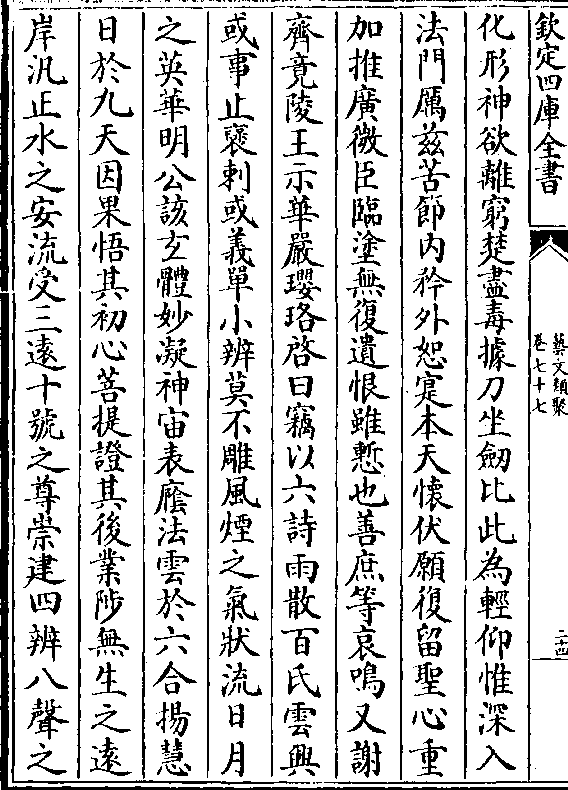 欽定四庫全書
藝文類聚
卷七十七
二十四
化形神欲離窮楚盡毒據刀坐劒比此為輕仰惟深入
法門厲兹苦節内矜外恕寔本天懷伏願復留聖心重
加推廣微臣臨塗無復遺恨雖慙也善庶等哀鳴又謝
齊竟陵王示華嚴瓔珞啓曰竊以六詩雨散百氏雲興
或事止襃刺或義單小辨莫不雕風煙之氣狀流日月
之英華明公該玄體妙凝神宙表廕法雲於六合揚慧
日於九天因果悟其初心菩提證其後業陟無生之遠
岸汎正水之安流受三遠十號之尊崇建四辨八聲之